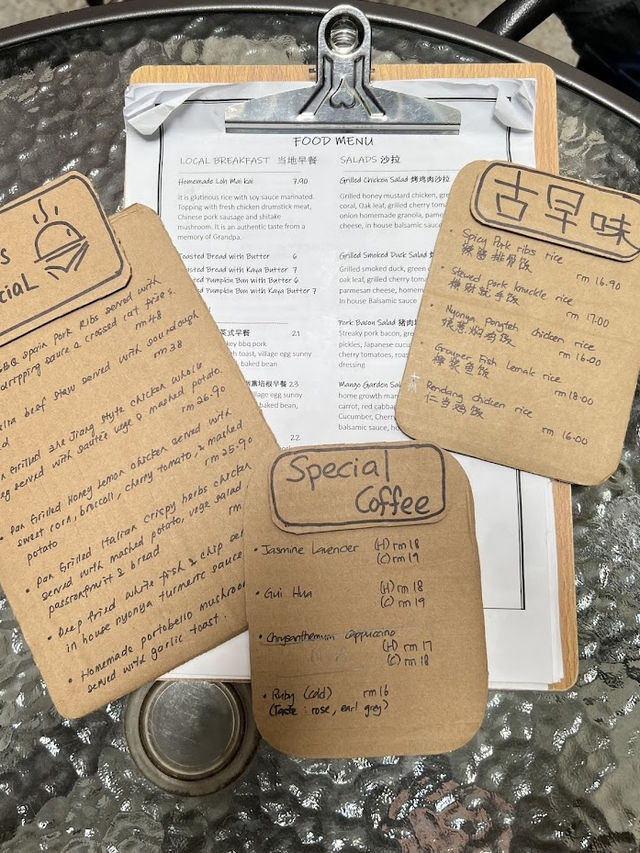 FOOD MENU
LOCAL BREAKFAST 当地早餐
Homemade Loh Mai kai 7.90
It is glutinous rice with soy sauce marinated.
Topping with fresh chicken drumstick meat,
Chinese pork sausage and shitake
mushroom. It is an authentic taste from a
memory of Grandpa.
Toasted Bread with Butter 6
Toasted Bread with Kaya Butter 7
Pumpkin Bun with Butter 6
Pumpkin Bun with Kaya Butter 7
英式早餐 21
bbq pork
toast, village egg sunny
baked bean,
熏培根早餐 23
village egg sunny
baked bean,
22
SALADS 沙拉
Grilled Chicken Salad 烤鸡肉沙拉
Grilled honey mustard chicken,
coral, Oak leaf, grilled cherry
onion homemade granola,
cheese, in house balsamic sauce
Grilled Smoked Duck Salad
Grilled smoked duck, green
oak leaf, grilled cherry
parmesan cheese, homemade
In house Balsamic sauce
Pork Bacon Salad
Streaky pork bacon,
pickles, Japanese
cherry tomatoes,
dressing
Mango Garden
home growth
carrot, red
Cucumber, Cherry
balsamic sauce,
BBQ Spain Pork Ribs served with
dripping sauce & crossed cat fries.
RM48
beef stew served with sourdough
RM38
Grilled Zhe Jiang style chicken whole
leg served with sautee vege & mashed potato.
RM26.90
• Pan Grilled Honey lemon chicken served with
sweet corn, broccoli, cherry tomato, & mashed
potato RM25.90
• Pan Grilled Italian crispy herbs chicken
served with mashed potato, vege salad
passionfruit & bread rm
• Deep fried white fish & chip
in house nyonya turmeric sauce
• Homemade portobello mushroom
served with garlic toast.
古早味
• Spicy Pork ribs rice
辣酱排骨饭 rm 16.90
• Stewed pork knuckle rice
rm 17.00
• Nyonya pongteh chicken rice
rm 16.00
• Grouper Fish lemak rice
rm 18.00
Rendang chicken rice
仁当鸡饭
rm 16.00
Special
Coffee
• Jasmine Lavender (H) rm 18
(C) rm 19
• Gui Hua (H) rm 18
(C) rm 19
• Chrysanthemum Cappuccino
(H) rm 17
(C) rm 18
• Ruby (cold) rm 16
(Taste : rose, earl grey)